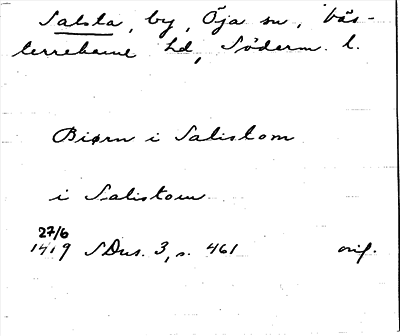 Salsta, by, Öja sn, Väs-
terrekarne hd, Söderm. l.
Biørn i Salistom
i Salistom
27/6
1419 SDns. 3, s. 461 orig.